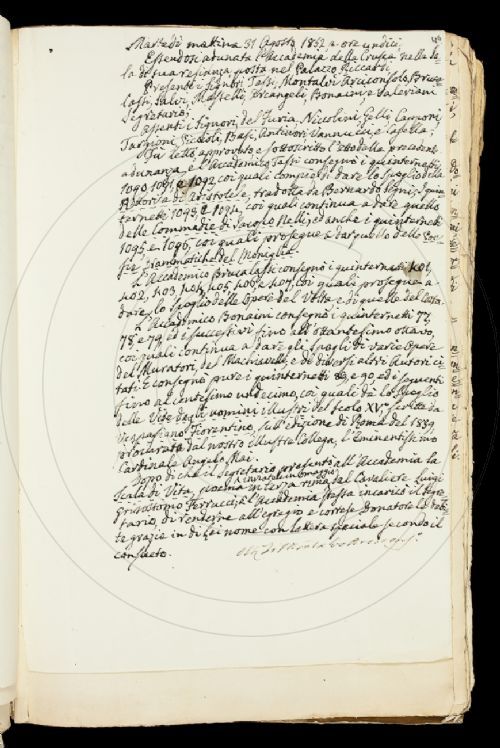 Martedì mattina 31 Agosto 1852 a ore undici.
Essendosi adunata l'Accademia della Crusca nella Sa-
la di sua residenza posta nel Palazzo Riccardi
Presenti i Signori: Tassi, Montalvi Arciconsolo, Bruca-
lassi, Salvi, Masselli, Arcangeli, Bonaini, e Valeriani
Segretario;
Assenti i Signori Del Furia, Nicolini, Gelli, Capponi,
Targioni, Puccioli, Basi, Antinori, Vannucci, e Casella;
Fu letto, approvato e sottoscritto l'atto della precedente
adunanza, e l'Accademico Tassi consegnò i quinternetti
1090, 1091 e 1092, coi quali compiè di dare lo Spoglio della
Rettorica d'Aristotele, tradotta da Bernardo Segni; i quin-
ternetti 1093, e 1094, coi quali continua a dare quello
delle Commedie di Jacopo Nelli; ed anche i quinternetti
1095 e 1096, coi quali prosegue a dar quello delle Poe-
sie Drammatiche del Moniglia.
L'Accademico Brucalassi consegnò i quinternetti 401,
402, 403, 404, 405, 406, e 407, coi quali prosegue a
dare lo Spoglio delle Opere del Volta e di quelle del Cocchi.
L'Accademico Bonaini consegnò i quinternetti 77,
78, e 79, ed i successivi fino all'ottantesimo ottavo,
coi quali continua a dare gli spogli di varie opere
del Muratori, del Machiavelli, e di diversi altri Autori ci-
tati. E consegnò pure i quinternetti 89, e 90, ed i seguenti
fino al centesimo undecimo, coi quali dà lo Spoglio
delle Vite degli uomini illustri del secolo XV, scritte da
Vespasiano Fiorentino, sull'edizione di Roma del 1839
procurata dal nostro illustre Collega, l'Eminentissimo
Cardinale Angelo Mai.
Dopo di che il Segretario presentò all'Accademia la
Scala di Vita, poema in terza rima del Cavaliere Luigi
Grisostomo Ferrucci; e l'Accademia stessa incaricò il Segre-
tario, di renderne all'egregio e cortese Donatore le debi-
te grazie in di lei nome con lettera speciale secondo il
consueto.